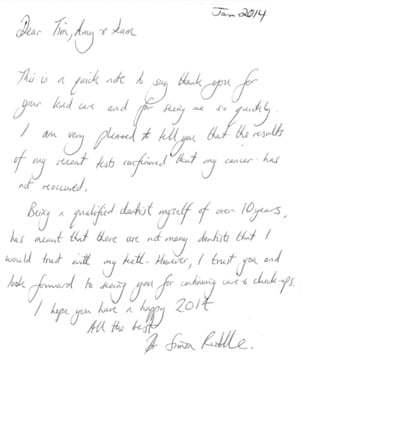 Jan 2014
Dear Tim, Amy &
This is a quick note to say thank you for
your kind care and for seeing me so quickly.
I am very pleased to tell you that the results
of my recent tests confirmed that my cancer has
not reoccured.
Being a qualified dentist myself of over 10 years,
has meant that there are not many dentists that I
would trust with my teeth. However, I trust you and
look forward to seeing you for continuing care & check-ups.
I hope you have a happy 2014
All the best
Dr Simon